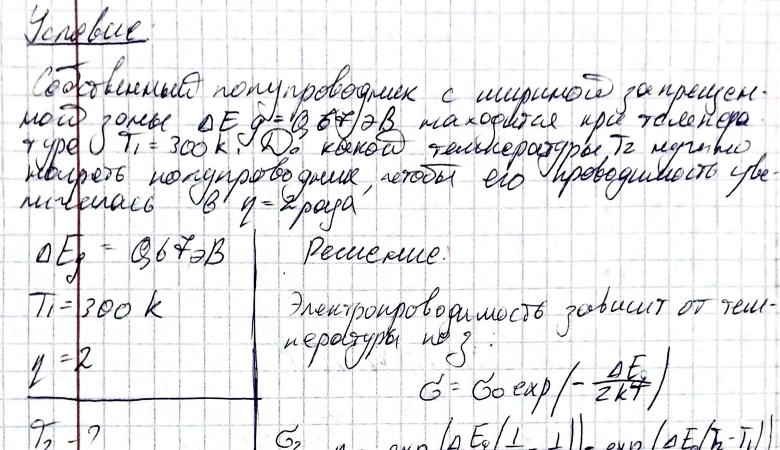 Условие:
Собственный полупроводник с шириной запрещен-
ной зоны ΔEg = 0,67 эВ находится при темпера
туре T1 = 300 k. До какой температуры T2 нужно
нагреть полупроводник, чтобы его проводимость уве-
личилась в η = 2 раза
ΔEg = 0,67 эВ
T1 = 300 k
η = 2
T2 - ?
Решение:
Электропроводимость зависит от тем-
пературы по з :
σ = σ0 exp(- ΔEg / 2kT)